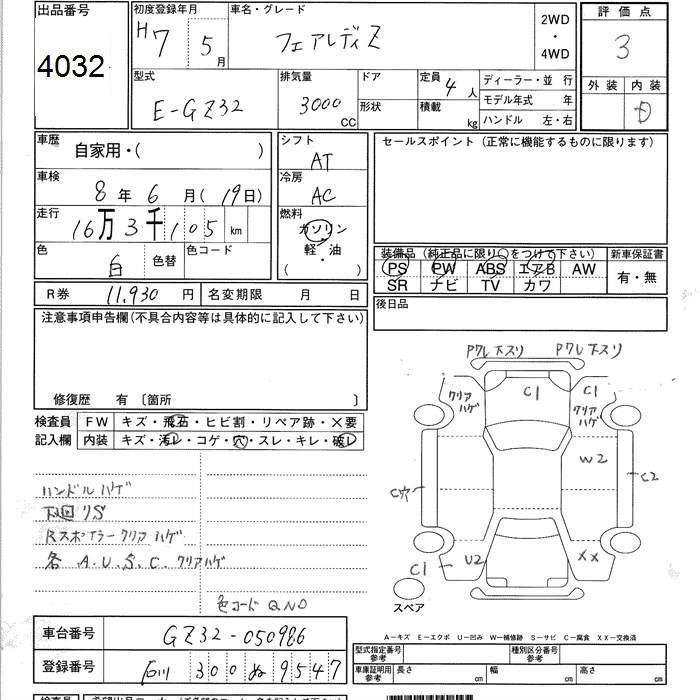 出品番号
4032
初度登録年月
H7 5月
車名・グレード
フェアレディZ
2WD
・
4WD
評価点
3
型式
E-GZ32
排気量
3000 CC
ドア
形状
定員 4人
積載 kg
ディーラー・並行
モデル年式 年
ハンドル 左・右
外装 内装
D
車歴
自家用・( )
車検
8年6月(19日)
走行
16万3千105km
色
白
色替
色コード
シフト
AT
冷房
AC
燃料
ガソリン
軽・油
( ・ )
セールスポイント(正常に機能するものに限ります)
装備品(純正品に限り○をつけて下さい)
PS PW ABS エアB AW
SR ナビ TV カワ
新車保証書
有・無
R券 11,930円
名変期限 月 日
後日品
注意事項申告欄(不具合内容等は具体的に記入して下さい)
修復歴 有〔箇所 〕
検査員
記入欄
FW キズ・飛石・ヒビ割・リペア跡・×要
内装 キズ・汚レ・コゲ・穴・スレ・キレ・破レ
ハンドルハゲ
下回リS
Rスポイラークリアハゲ
各 A.U.S.C. クリアハゲ
色コード QN0
PワレキスリPワレキスリ
クリアハゲ
C1
C1
クリアハゲ
W2
C穴
C2
C1
U2
XX
スペア
車台番号
GZ32-050986
登録番号
石川 300 ぬ 9547
A-キズ E-エクボ U-凹み W-補修跡 S-サビ C-腐食 XX-交換済
型式指定番号
参考
種別区分番号
参考
車庫証明用
参考
長さ cm
幅 cm
高さ cm